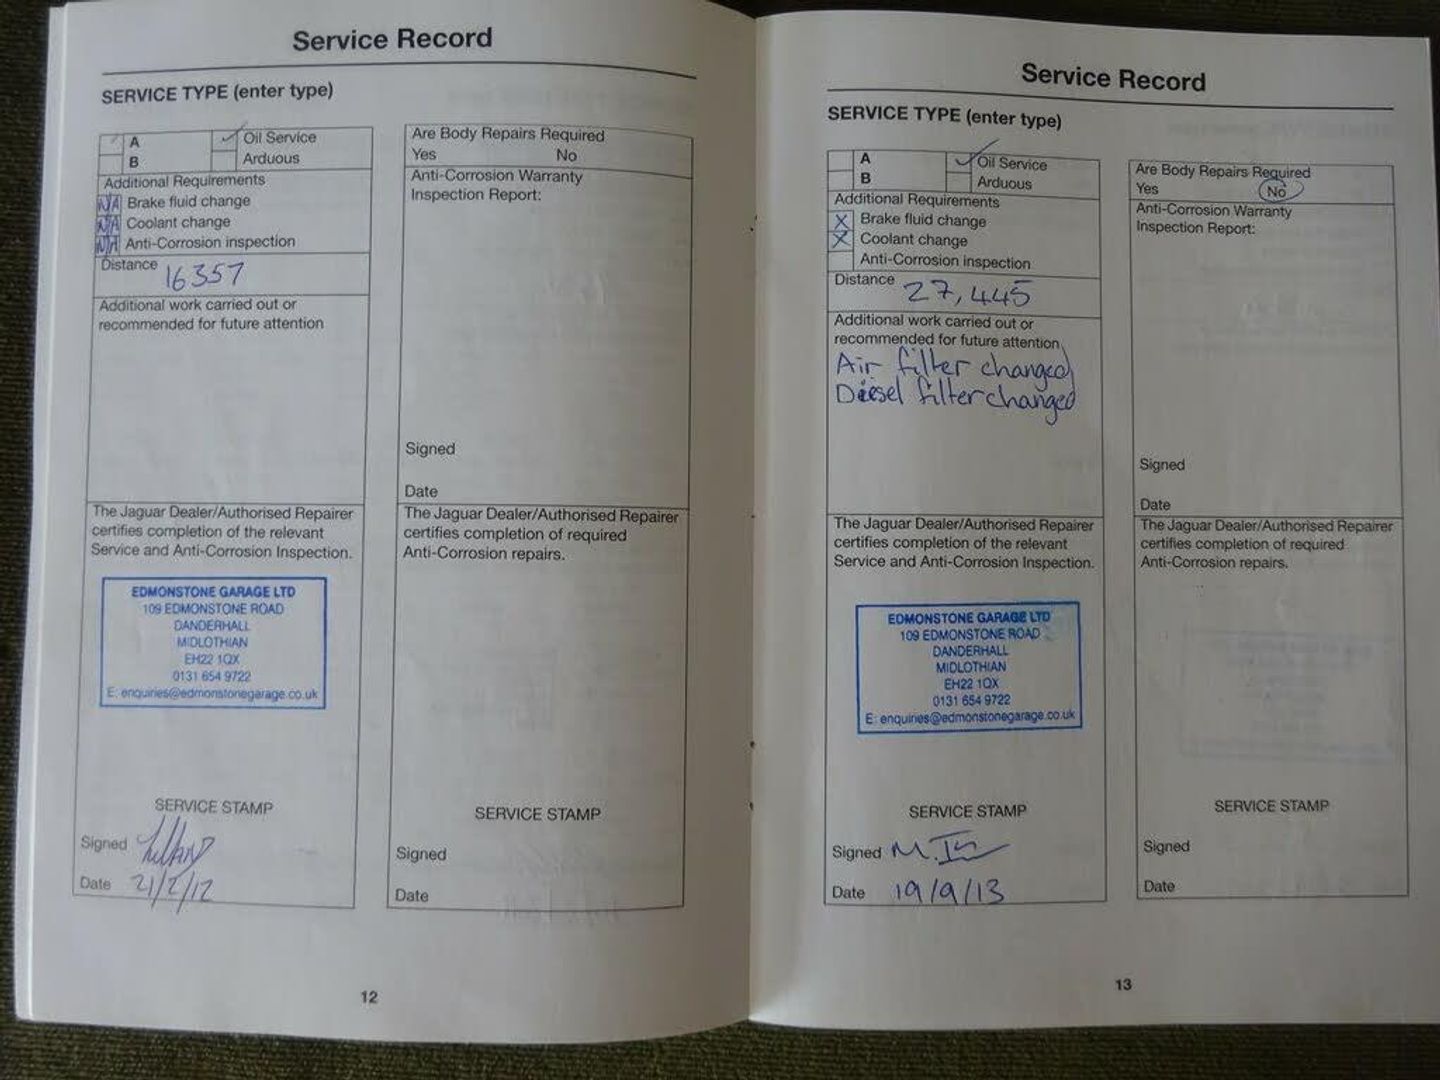 Service Record
SERVICE TYPE (enter type)
A
Oil Service
B
Arduous
Additional Requirements
N/A Brake fluid change
N/A Coolant change
N/A Anti-Corrosion inspection
Distance 16357
Additional work carried out or
recommended for future attention
The Jaguar Dealer/Authorised Repairer
certifies completion of the relevant
Service and Anti-Corrosion Inspection.
EDMONSTONE GARAGE LTD
109 EDMONSTONE ROAD
DANDERHALL
MIDLOTHIAN
EH22 1QX
0131 654 9722
E: enquiries@edmonstonegarage.co.uk
SERVICE STAMP
Signed
Date 21/2/12
Are Body Repairs Required
Yes No
Anti-Corrosion Warranty
Inspection Report:
Signed
Date
The Jaguar Dealer/Authorised Repairer
certifies completion of required
Anti-Corrosion repairs.
SERVICE STAMP
Signed
Date
12
Service Record
SERVICE TYPE (enter type)
A
Oil Service
B
Arduous
Additional Requirements
X Brake fluid change
X Coolant change
Anti-Corrosion inspection
Distance 27,445
Additional work carried out or
recommended for future attention
Air filter changed
Diesel filter changed
The Jaguar Dealer/Authorised Repairer
certifies completion of the relevant
Service and Anti-Corrosion Inspection.
EDMONSTONE GARAGE LTD
109 EDMONSTONE ROAD
DANDERHALL
MIDLOTHIAN
EH22 1QX
0131 654 9722
E: enquiries@edmonstonegarage.co.uk
SERVICE STAMP
Signed
Date 19/9/13
Are Body Repairs Required
Yes No
Anti-Corrosion Warranty
Inspection Report:
Signed
Date
The Jaguar Dealer/Authorised Repairer
certifies completion of required
Anti-Corrosion repairs.
SERVICE STAMP
Signed
Date
13